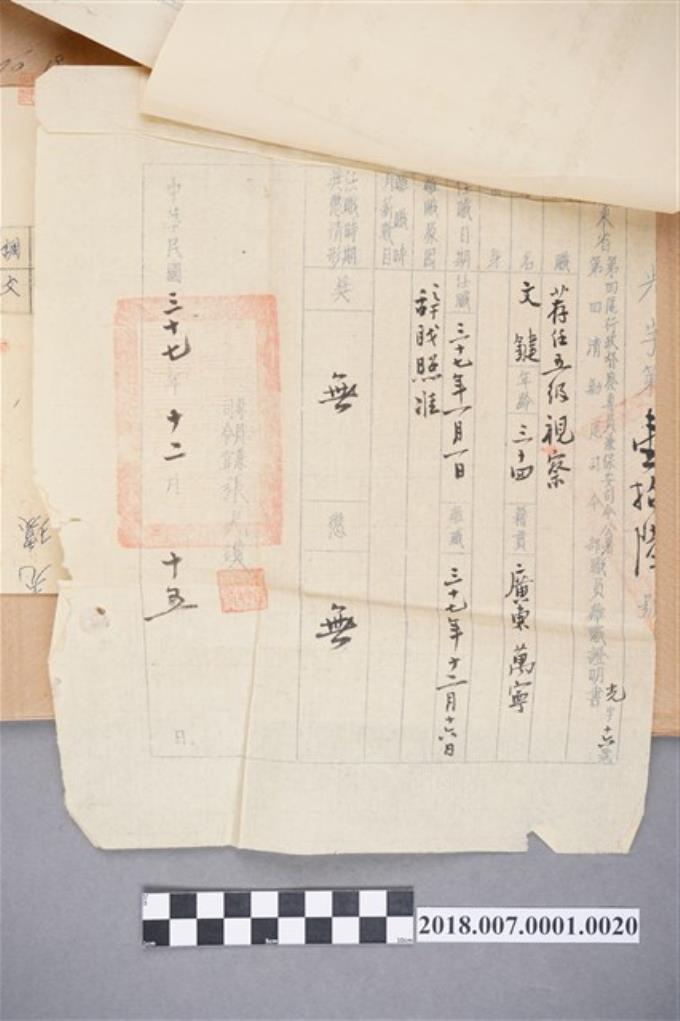 光字第壹拾陸號
東省第四區行政督察專員兼保安司令公署
第四清剿區司令部職員離職證明書
光字十六號
職
荐任五級視察
名
文鍵
年齡
三十四
籍貫
廣東萬寧
身
任職日期
任職
三十七年一月一日
離職
三十七年十二月十六日
離職原因
辭職照准
離職時
月薪數目
任職時期
獎懲情形
獎
無
懲
無
司令
張
中華民國三十七年十二月十五日
調
文
2018.007.0001.0020